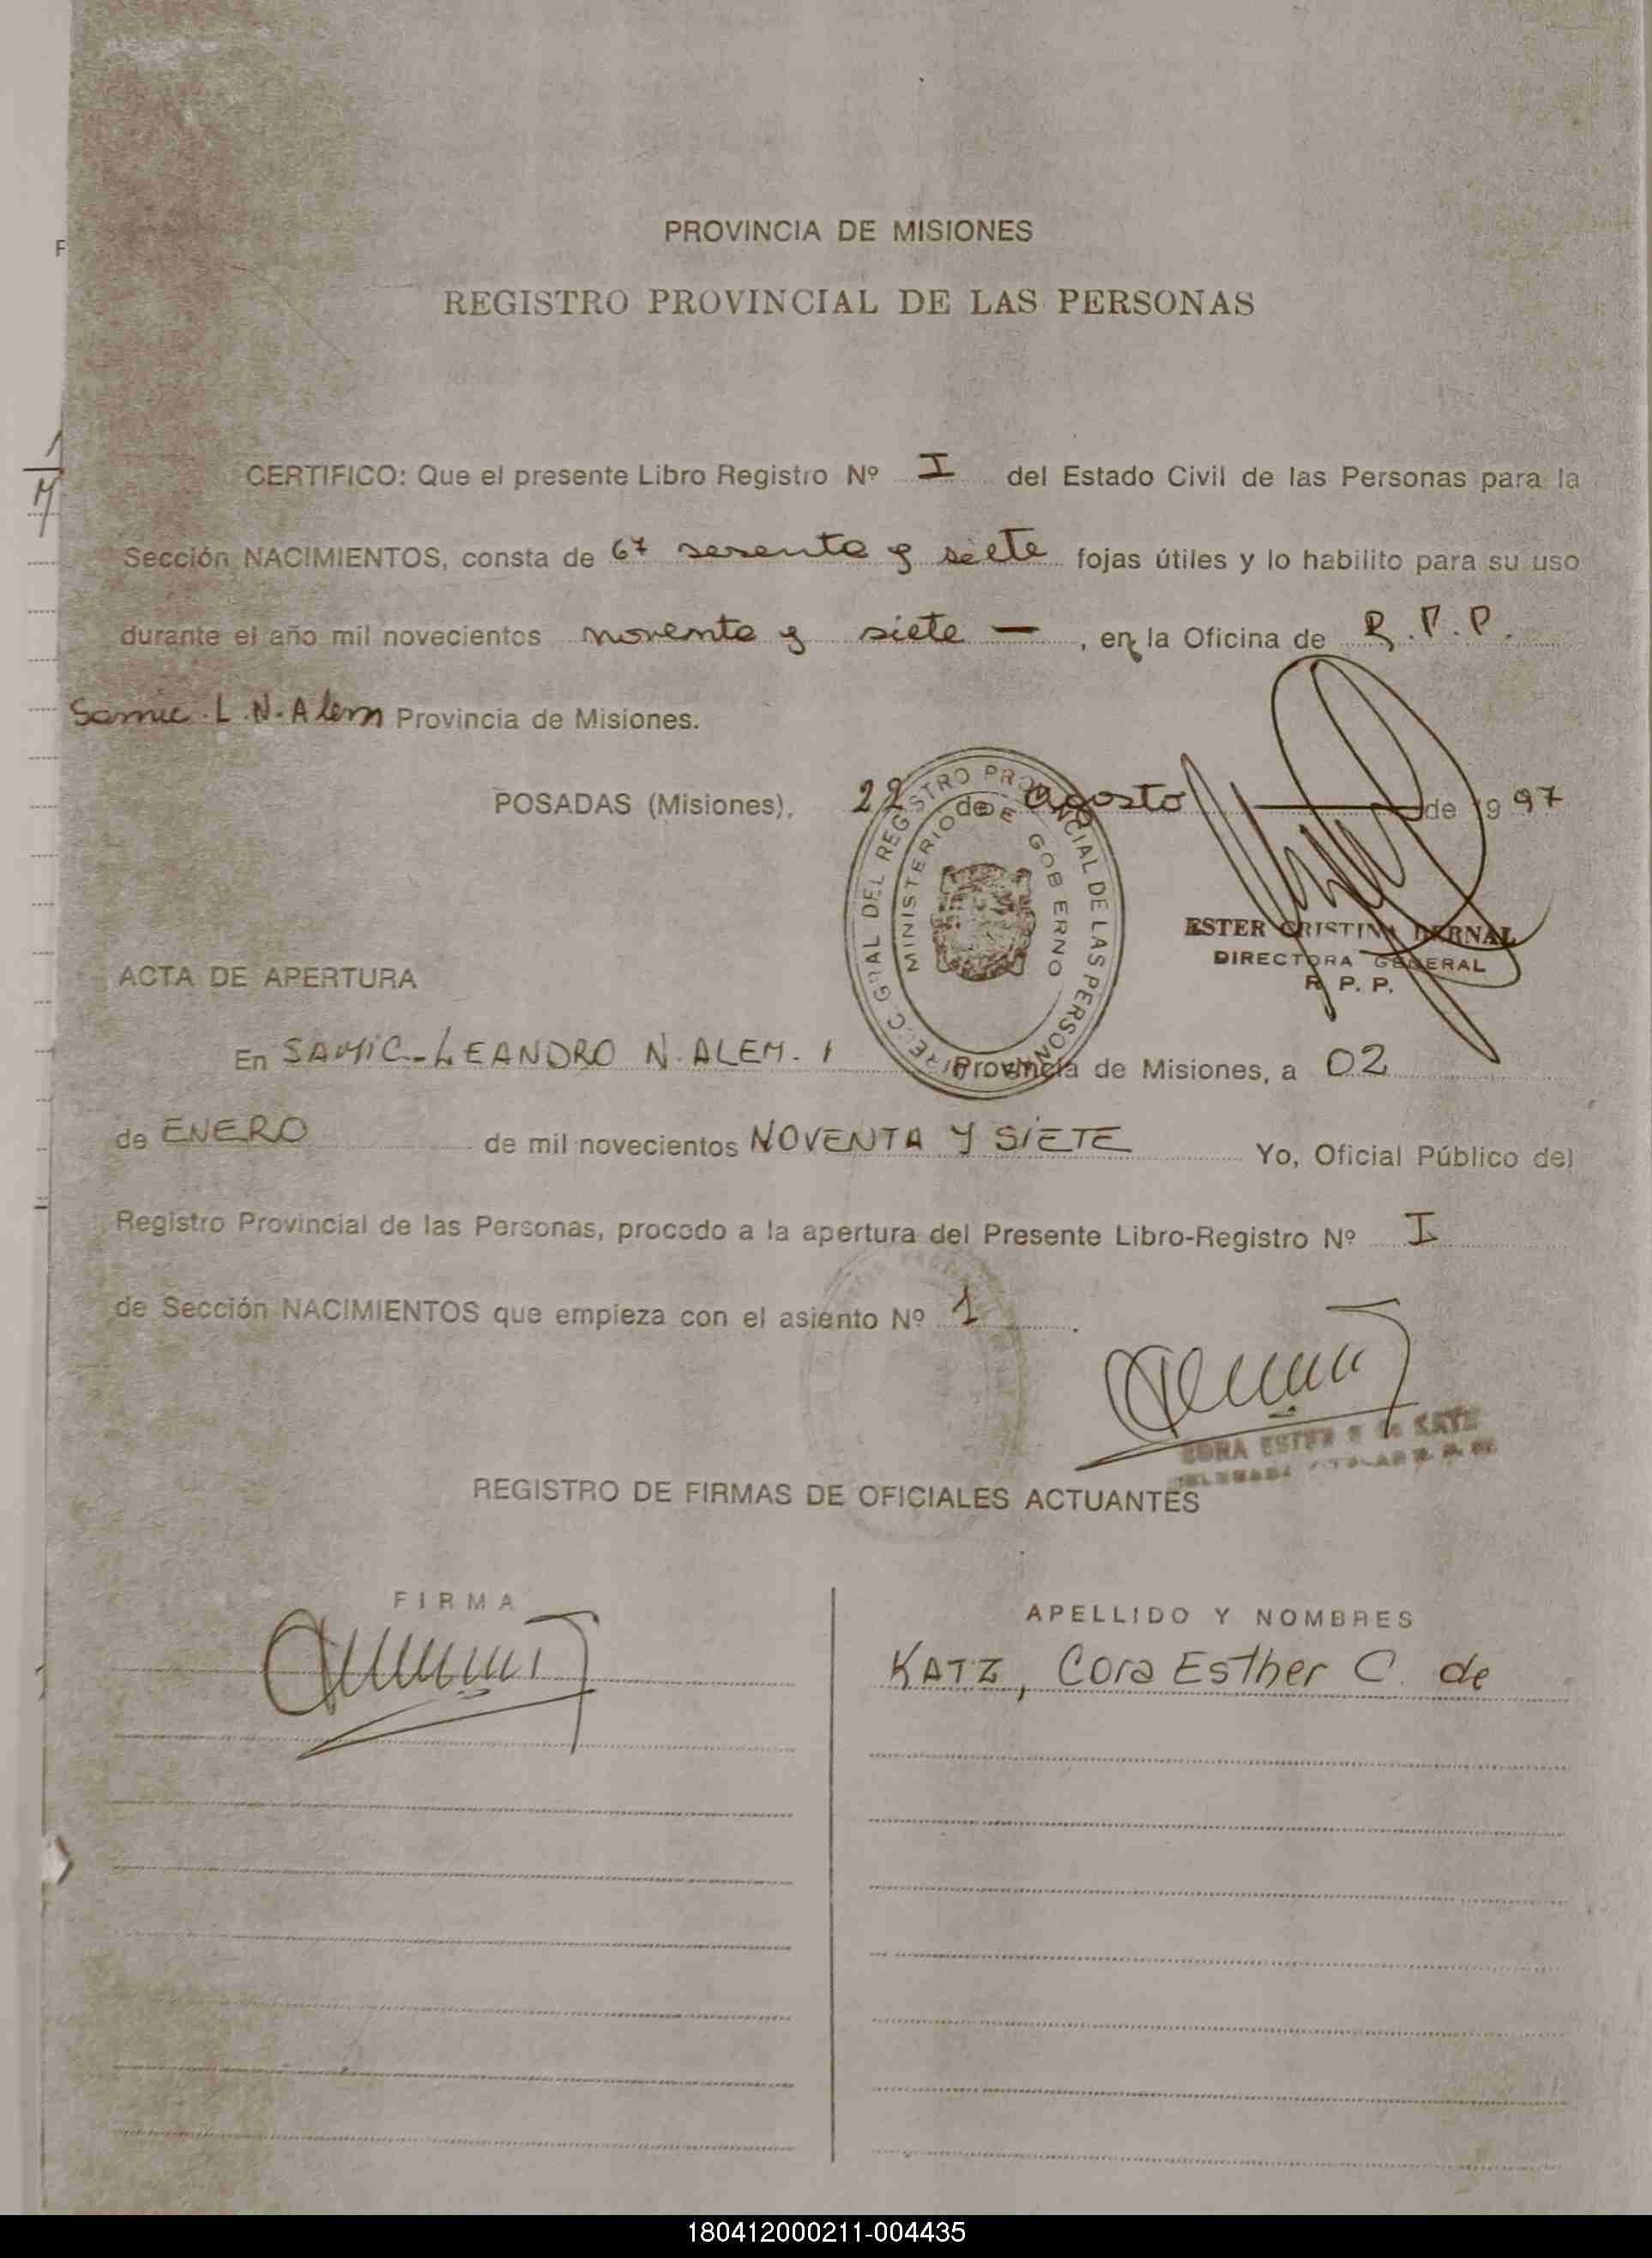 PROVINCIA DE MISIONES
REGISTRO PROVINCIAL DE LAS PERSONAS
CERTIFICO: Que el presente Libro Registro Nº I del Estado Civil de las Personas para la
Sección NACIMIENTOS, consta de 67 sesenta y siete fojas útiles y lo habilito para su uso
durante el año mil novecientos noventa y siete — , en la Oficina de R.P.P.
Samic. L.N. Alem Provincia de Misiones.
POSADAS (Misiones), 22 de agosto de 1997
DIREC. GRAL DEL REGISTRO PROVINCIAL DE LAS PERSONAS
MINISTERIO DE GOBIERNO
ESTER CRISTINA BERNAL
DIRECTORA GENERAL
R. P. P.
ACTA DE APERTURA
En SAMIC-LEANDRO N. ALEM. Provincia de Misiones, a 02
de ENERO de mil novecientos NOVENTA Y SIETE Yo, Oficial Público del
Registro Provincial de las Personas, procedo a la apertura del Presente Libro-Registro Nº I
de Sección NACIMIENTOS que empieza con el asiento Nº 1 .
CORA ESTER C de KATZ
REGISTRO DE FIRMAS DE OFICIALES ACTUANTES
FIRMA
APELLIDO Y NOMBRES
KATZ, Cora Esther C. de
180412000211-004435